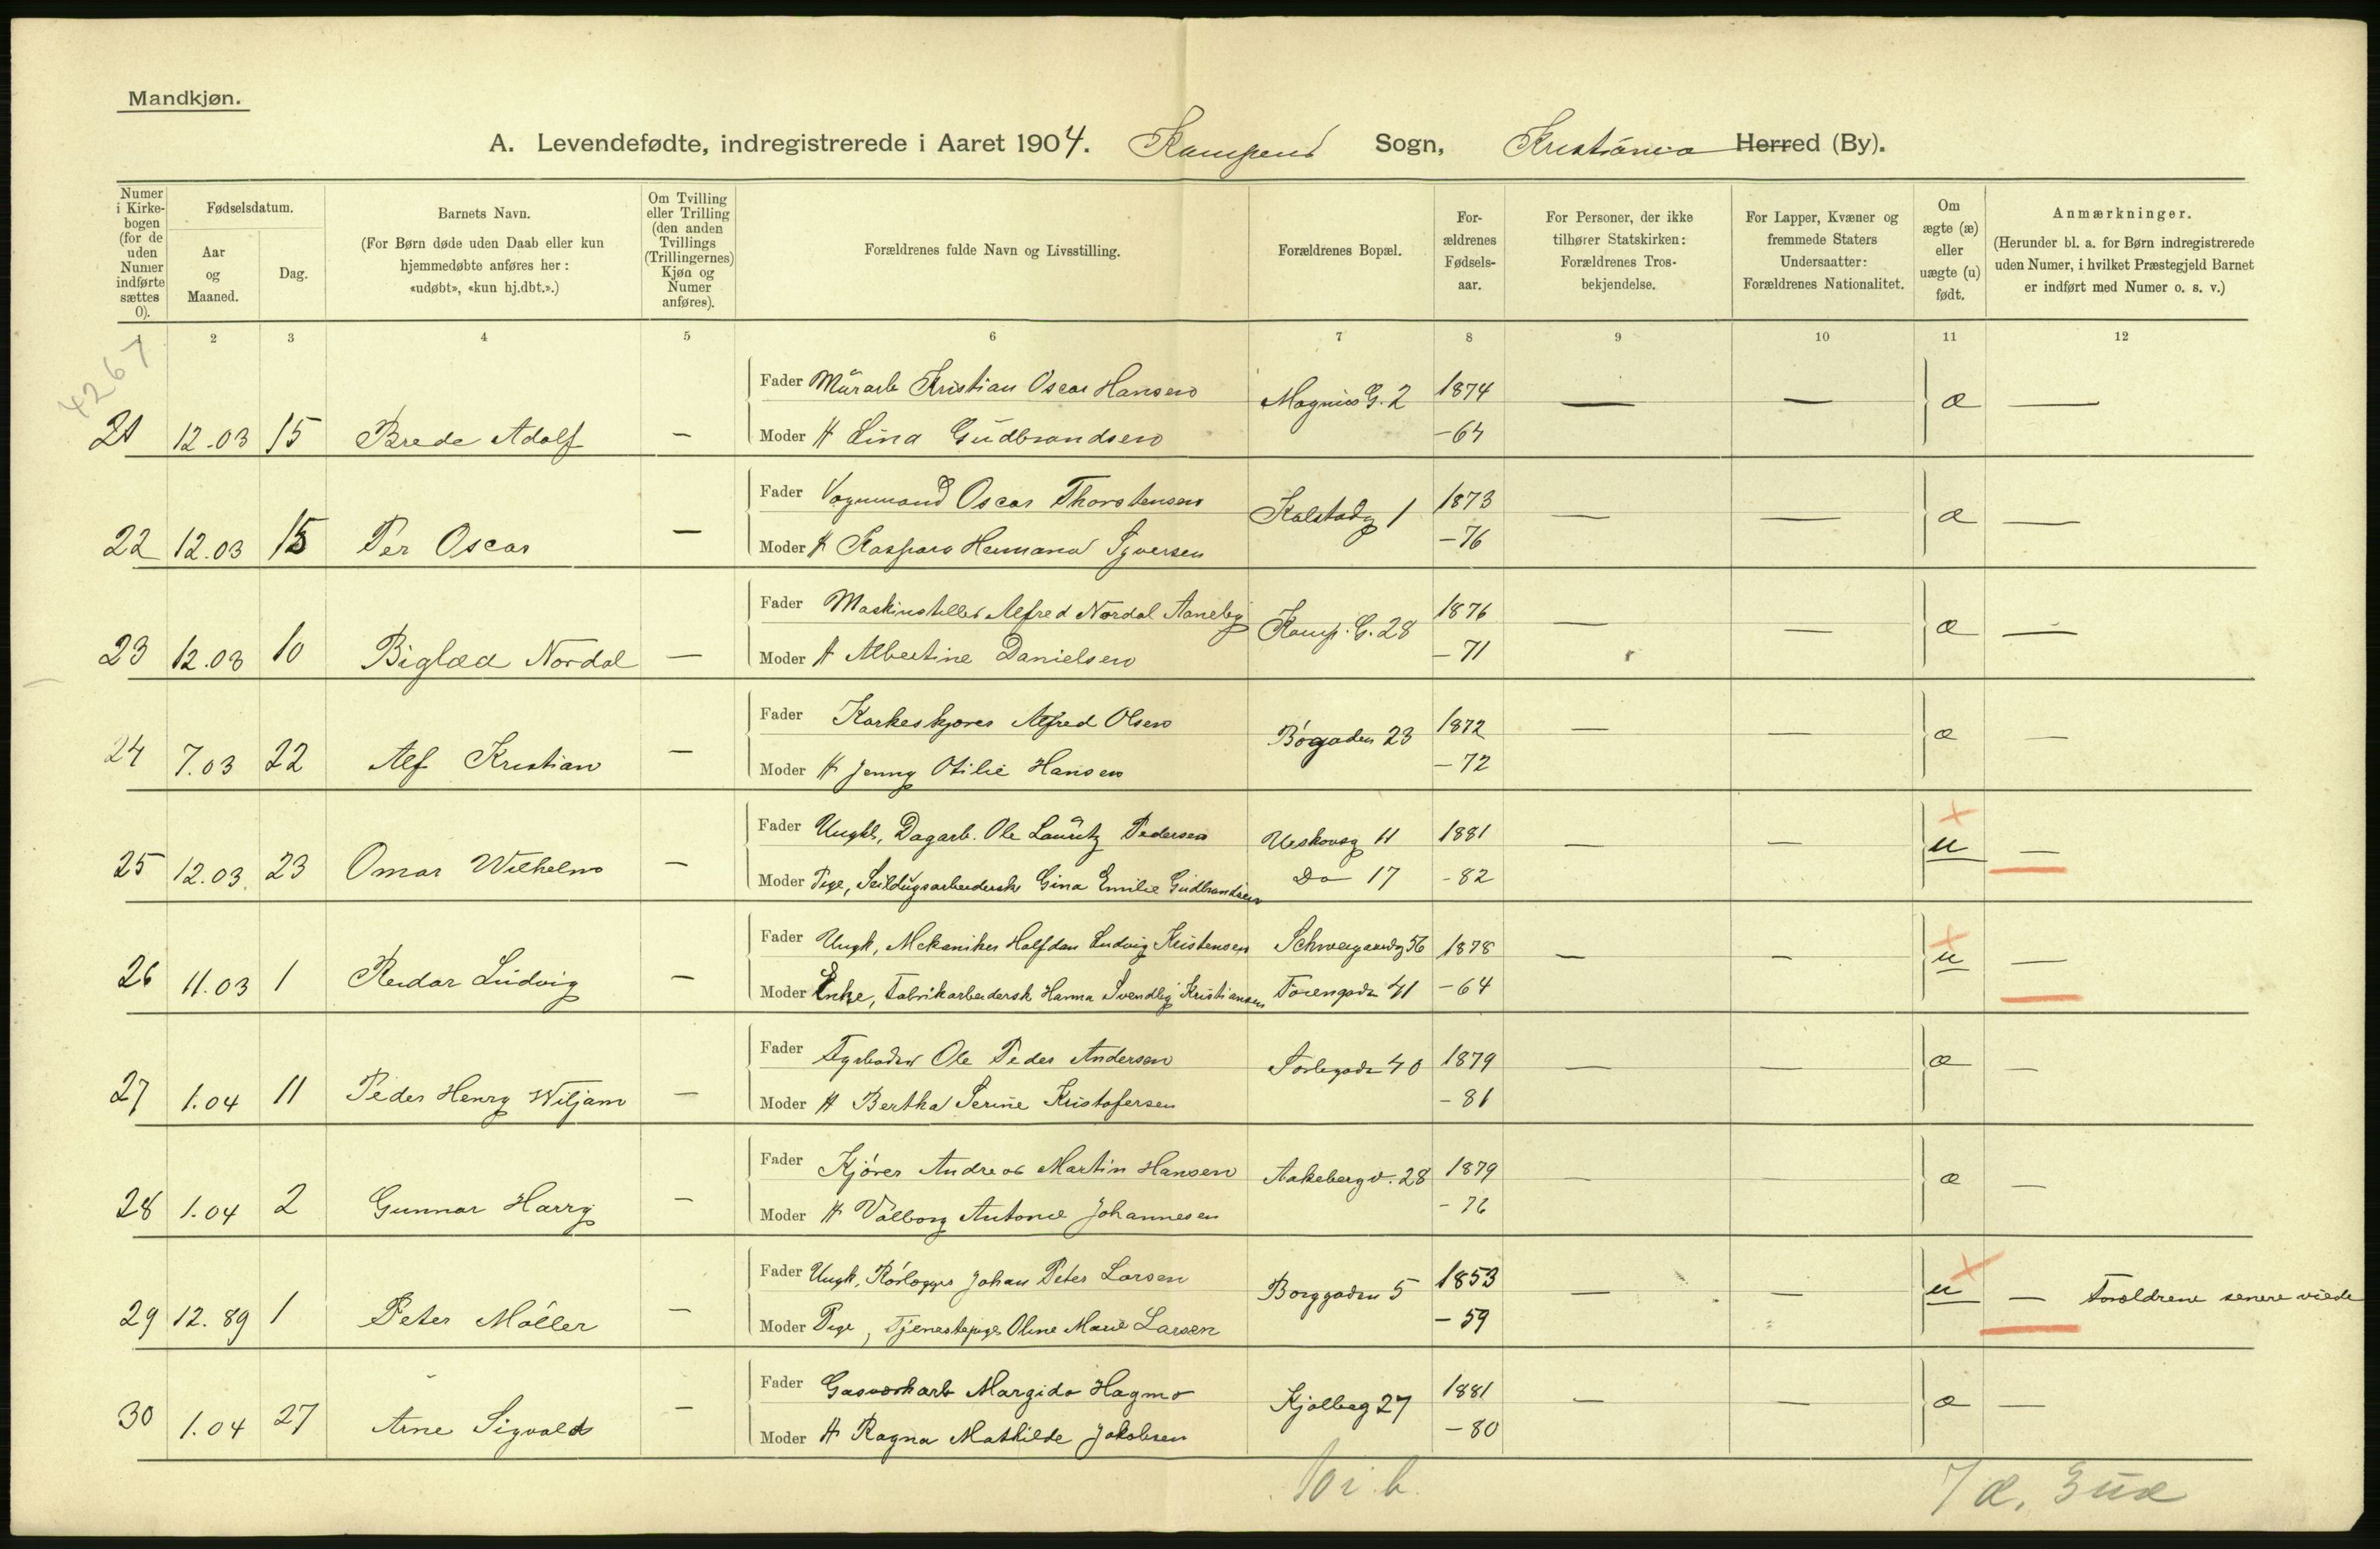 Mandkjøn.
A. Levendefødte, indregistrerede i Aaret 1904. Kampens Sogn, Kristiania Herred (By).
Numer i Kirkebogen (for de uden Numer indførte sættes 0).
Fødselsdatum.
Aar og Maaned.
Dag.
Barnets Navn.
(For Børn døde uden Daab eller kun hjemmedøbte anføres her: «udøbt», «kun hj.dbt.».)
Om Tvilling eller Trilling (den anden Tvillings (Trillingernes) Kjøn og Numer anføres).
Forældrenes fulde Navn og Livsstilling.
Forældrenes Bopæl.
Forældrenes Fødselsaar.
For Personer, der ikke tilhører Statskirken: Forældrenes Trosbekjendelse.
For Lapper, Kvæner og fremmede Staters Undersaatter: Forældrenes Nationalitet.
Om ægte (æ) eller uægte (u) født.
Anmærkninger.
(Herunder bl. a. for Børn indregistrerede uden Numer, i hvilket Præstegjeld Barnet er indført med Numer o. s. v.)
1 2 3 4 5 6 7 8 9 10 11 12
4267
Fader Murarb Kristian Oscar Hansen Magnus G. 2 1874 — — æ —
21 12.03 15 Brede Adolf — Moder H Lina Gudbrandsen -64
Fader Vognmand Oscar Thorstensen Kalstadg 1 1873 — — æ —
22 12.03 15 Per Oscar — Moder H Kaspara Hermana Syversen -76
Fader Maskinstiller Alfred Nordal Aaneby Kamp. G. 28 1876 — — æ —
23 12.03 10 Biglad Nordal — Moder H Albertine Danielsen -71
Fader Korkeskjærer Alfred Olsen Bøgaden 23 1872 — — æ —
24 7.03 22 Alf Kristian — Moder H Jenny Otilie Hansen -72
Fader Ungk, Dagarb. Ole Lauritz Pedersen 11 1881 — — u —
25 12.03 23 Omar Wilhelm — Moder Pige, Seildugsarbeiderske Gina Emilie Gudbrandsen Do 17 -82
Fader Ungk, Mekaniker Halfdan Ludvig Kristensen Schweigaardsg 56 1878 — — u —
26 11.03 1 Reidar Ludvig — Moder Enke, Fabrikarbeidersk Hanna Svendby Kristiansen 41 -64
Fader Fyrbøder Ole Peder Andersen Sørligade 40 1879 — — æ —
27 1.04 11 Peder Henry Wiljam — Moder H Bertha Serine Kristofersen -81
Fader Kjører Andreas Martin Hansen Aakebergv. 28 1879 — — æ —
28 1.04 2 Gunnar Harry — Moder H Valborg Antonie Johannesen -76
Fader Ungk, Rørlægger Johan Peter Larsen Borggaden 5 1853 — — u — Forældrene senere viede
29 12.89 1 Peter Møller — Moder Pige, Tjenestepige Oline Marie Larsen -59
Fader Gasværkarb Margido Hagmo Kjølberg 27 1881 — — æ —
30 1.04 27 Arne Sigvald — Moder H Ragna Mathilde Jakobsen -80
10 i. b. 7 æ, 3 uæ